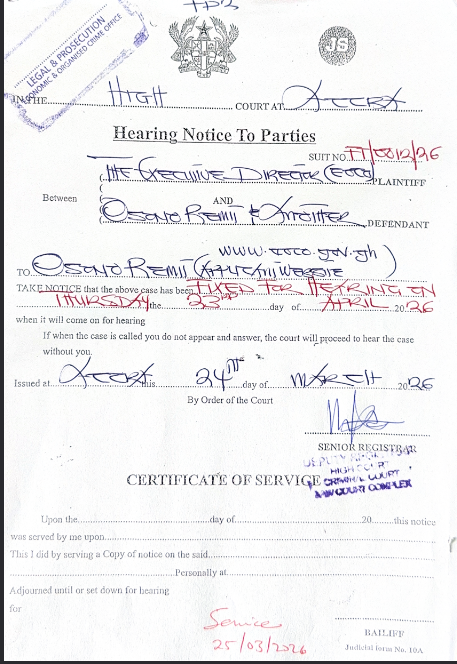 LEGAL & PROSECUTION
ECONOMIC & ORGANISED CRIME OFFICE
JS
IN THE HIGH COURT AT ACCRA
Hearing Notice To Parties
SUIT NO. FT/0012/26
THE EXECUTIVE DIRECTOR (EOCO) PLAINTIFF
Between AND
OSONO REMII & ANOTHER DEFENDANT
www.eoco.gov.gh
TO: OSONO REMII (APPLICANT WEBSITE)
TAKE NOTICE that the above case has been FIXED FOR HEARING ON
THURSDAY the 23RD day of APRIL 2026
when it will come on for hearing
If when the case is called you do not appear and answer, the court will proceed to hear the case
without you.
Issued at ACCRA this 24TH day of MARCH 2026
By Order of the Court
SENIOR REGISTRAR
HIGH COURT
CRIMINAL COURT
LAW COURT COMPLEX
CERTIFICATE OF SERVICE
Upon the day of 20 this notice
was served by me upon
This I did by serving a Copy of notice on the said
Personally at
Adjourned until or set down for hearing
for
Service
25/03/2026
BAILIFF
Judicial form No. 10A